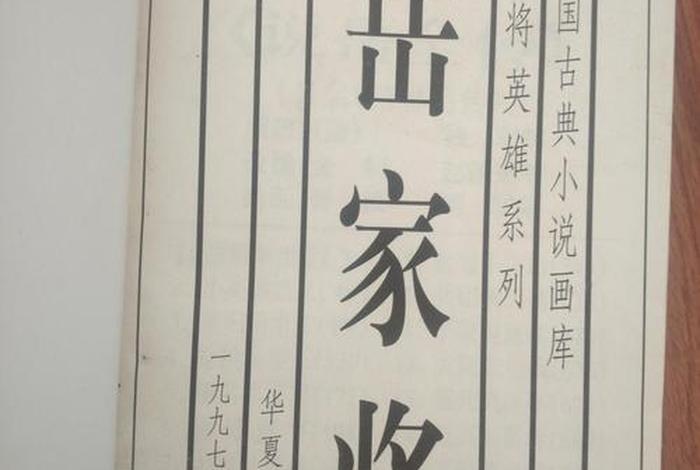 国古典小说画库
将英雄系列
岳家将
华夏
一九九七